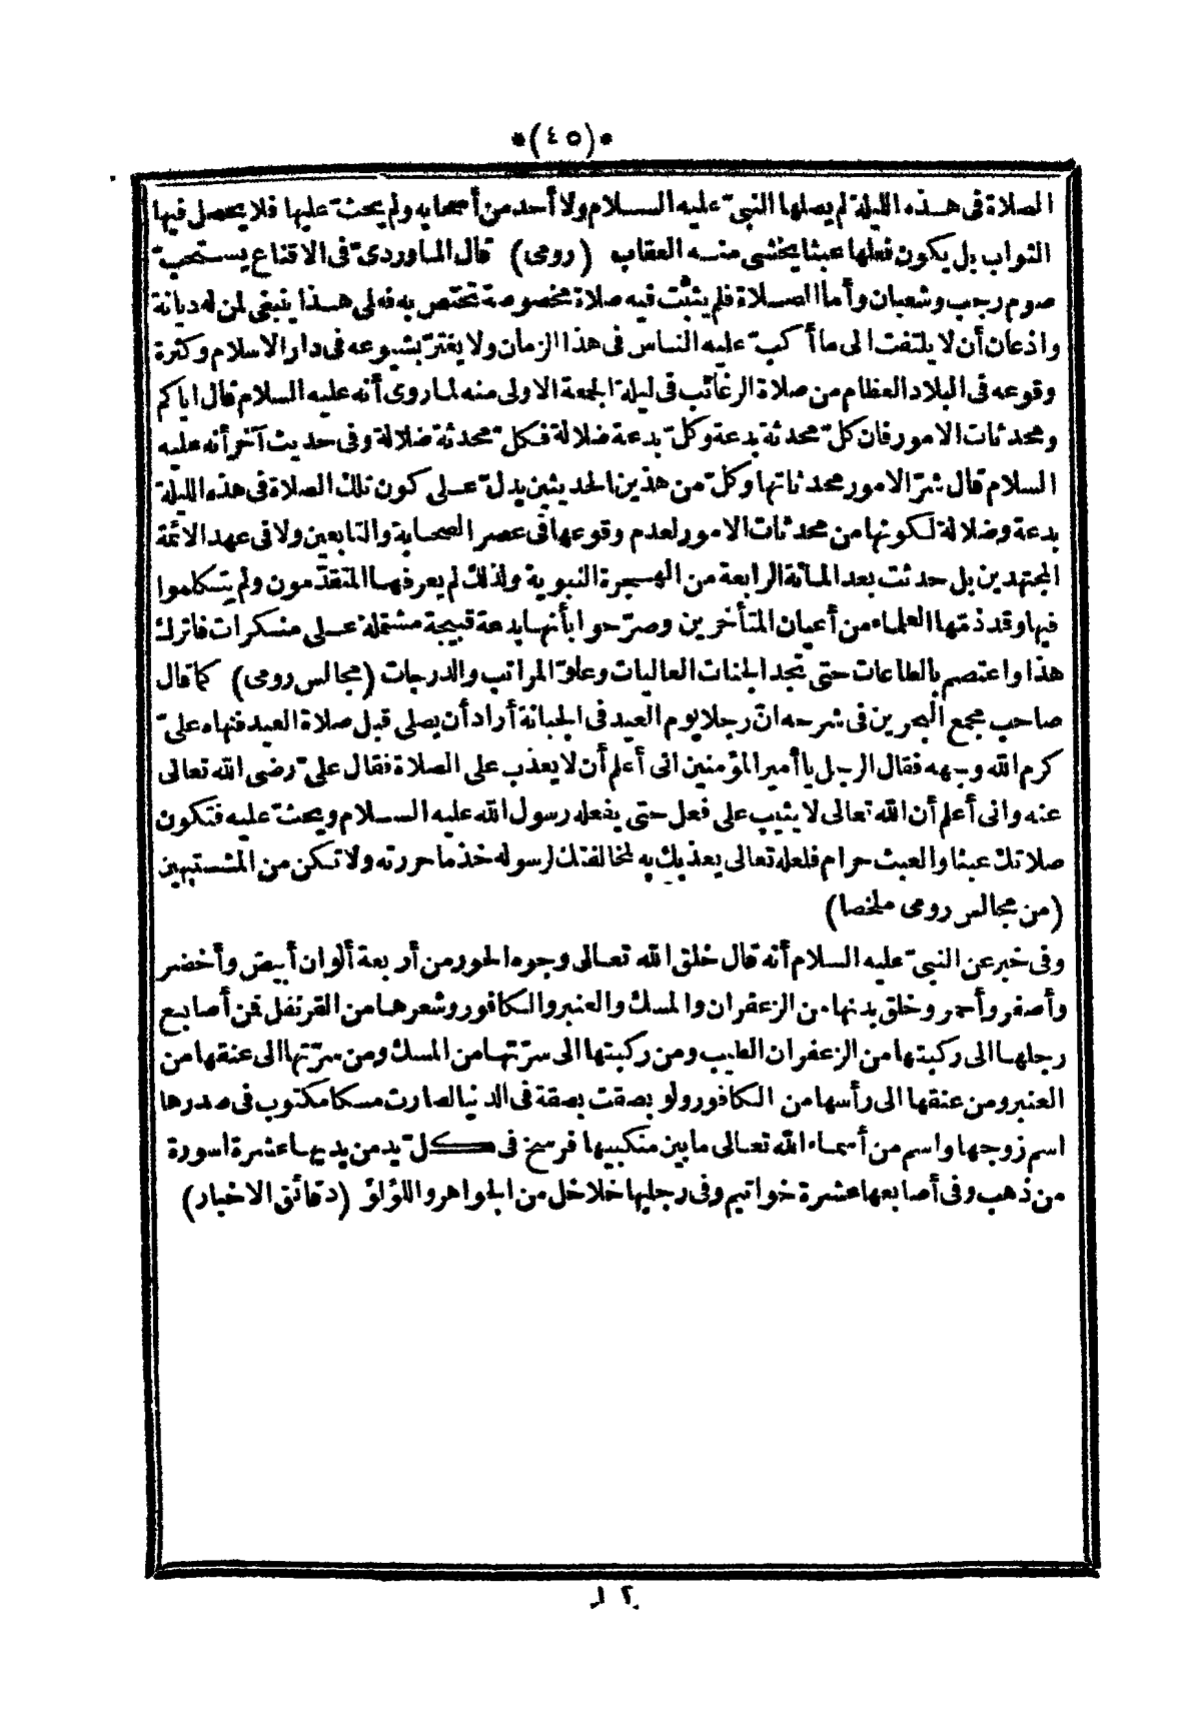 *(٤٥)*
الصلاة فى هذه الليلة لم يصلها النبىّ عليه السلام ولا أحد من أصحابه ولم يحثّ عليها فلا يحصل فيها
الثواب بل يكون فعلها عبثا يخشى منه العقاب (رومى) قال الماوردىّ فى الاقناع يستحبّ
صوم رجب وشعبان وأما الصلاة فلم يثبت فيه صلاة مخصوصة تختص به فعلى هذا ينبغى لمن له ديانة
واذعان أن لا يلتفت الى ما أكبّ عليه الناس فى هذا الزمان ولا يغترّ بشيوعه فى دار الاسلام وكثرة
وقوعه فى البلاد العظام من صلاة الرغائب فى ليلة الجمعة الاولى منه لما روى أنه عليه السلام قال اياكم
ومحدثات الامور فان كلّ محدثة بدعة وكلّ بدعة ضلالة فكلّ محدثة ضلالة وفى حديث آخر أنه عليه
السلام قال شرّ الامور محدثاتها وكلّ من هذين الحديثين يدلّ على كون تلك الصلاة فى هذه الليلة
بدعة وضلالة لكونها من محدثات الامور لعدم وقوعها فى عصر الصحابة والتابعين ولا فى عهد الائمة
المجتهدين بل حدثت بعد المائة الرابعة من الهجرة النبوية ولذلك لم يعرفها المتقدّمون ولم يتكلموا
فيها وقد ذمّها العلماء من أعيان المتأخرين وصرّحوا بأنها بدعة قبيحة مشتملة على منكرات فاترك
هذا واعتصم بالطاعات حتى تجد الجنات العاليات وعلوّ المراتب والدرجات (مجالس رومى) كما قال
صاحب مجمع البحرين فى شرحه انّ رجلا يوم العيد فى الجبانة أراد أن يصلى قبل صلاة العيد فنهاه علىّ
كرم الله وجهه فقال الرجل يا أمير المؤمنين انى أعلم أن لا يعذب على الصلاة فقال علىّ رضى الله تعالى
عنه وانى أعلم أن الله تعالى لا يثيب على فعل حتى يفعله رسول الله عليه السلام ويحثّ عليه فتكون
صلاتك عبثا والعبث حرام فلعله تعالى يعذبك به لمخالفتك لرسوله خذ ما حررته ولا تكن من المشتبهين
(من مجالس رومى ملخصا)
وفى خبر عن النبىّ عليه السلام أنه قال خلق الله تعالى وجوه الحور من أربعة ألوان أبيض وأخضر
وأصفر وأحمر وخلق بدنها من الزعفران والمسك والعنبر والكافور وشعرها من القرنفل فمن أصابع
رجلها الى ركبتها من الزعفران الطيب ومن ركبتها الى سرّتها من المسك ومن سرّتها الى عنقها من
العنبر ومن عنقها الى رأسها من الكافور ولو بصقت بصقة فى الدنيا لصارت مسكا مكتوب فى صدرها
اسم زوجها واسم من أسماء الله تعالى ما بين منكبيها فرسخ فى كلّ يد من يديها عشرة اسورة
من ذهب وفى أصابعها عشرة خواتيم وفى رجليها خلاخل من الجواهر واللؤلؤ (دقائق الاخبار)